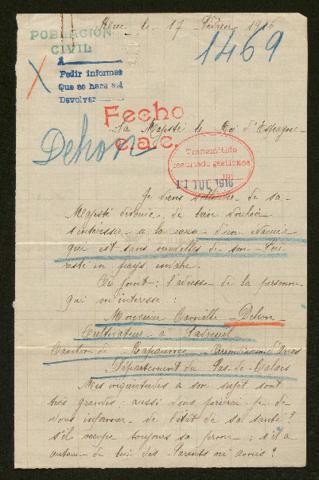 le 17 Février 1916
POBLACION
CIVIL
1469
Pedir informes
Que se hara así
Devolver
Fecho
Sa Majesté le Roi d'Espagne
Dehon
Transmitido
resultado gestiones
11 JUL 1916
Je viens solliciter de sa
Majesté de bien vouloir
s'intéresser à la cause d'un
qui est sans nouvelles de son
resté en pays envahi.
Ci joint : l'adresse de la personne
qui m'intéresse :
Monsieur Dehon
Cultivateur à
Canton de Bapaume Arrondissement d'Arras
Département du Pas-de-Calais
Mes inquiétudes à son sujet sont
très grandes : aussi vous prierai-je de
vous informer de l'état de sa santé ?
s'il occupe toujours sa ferme : s'il a
autour de lui des Parents ou amis ?